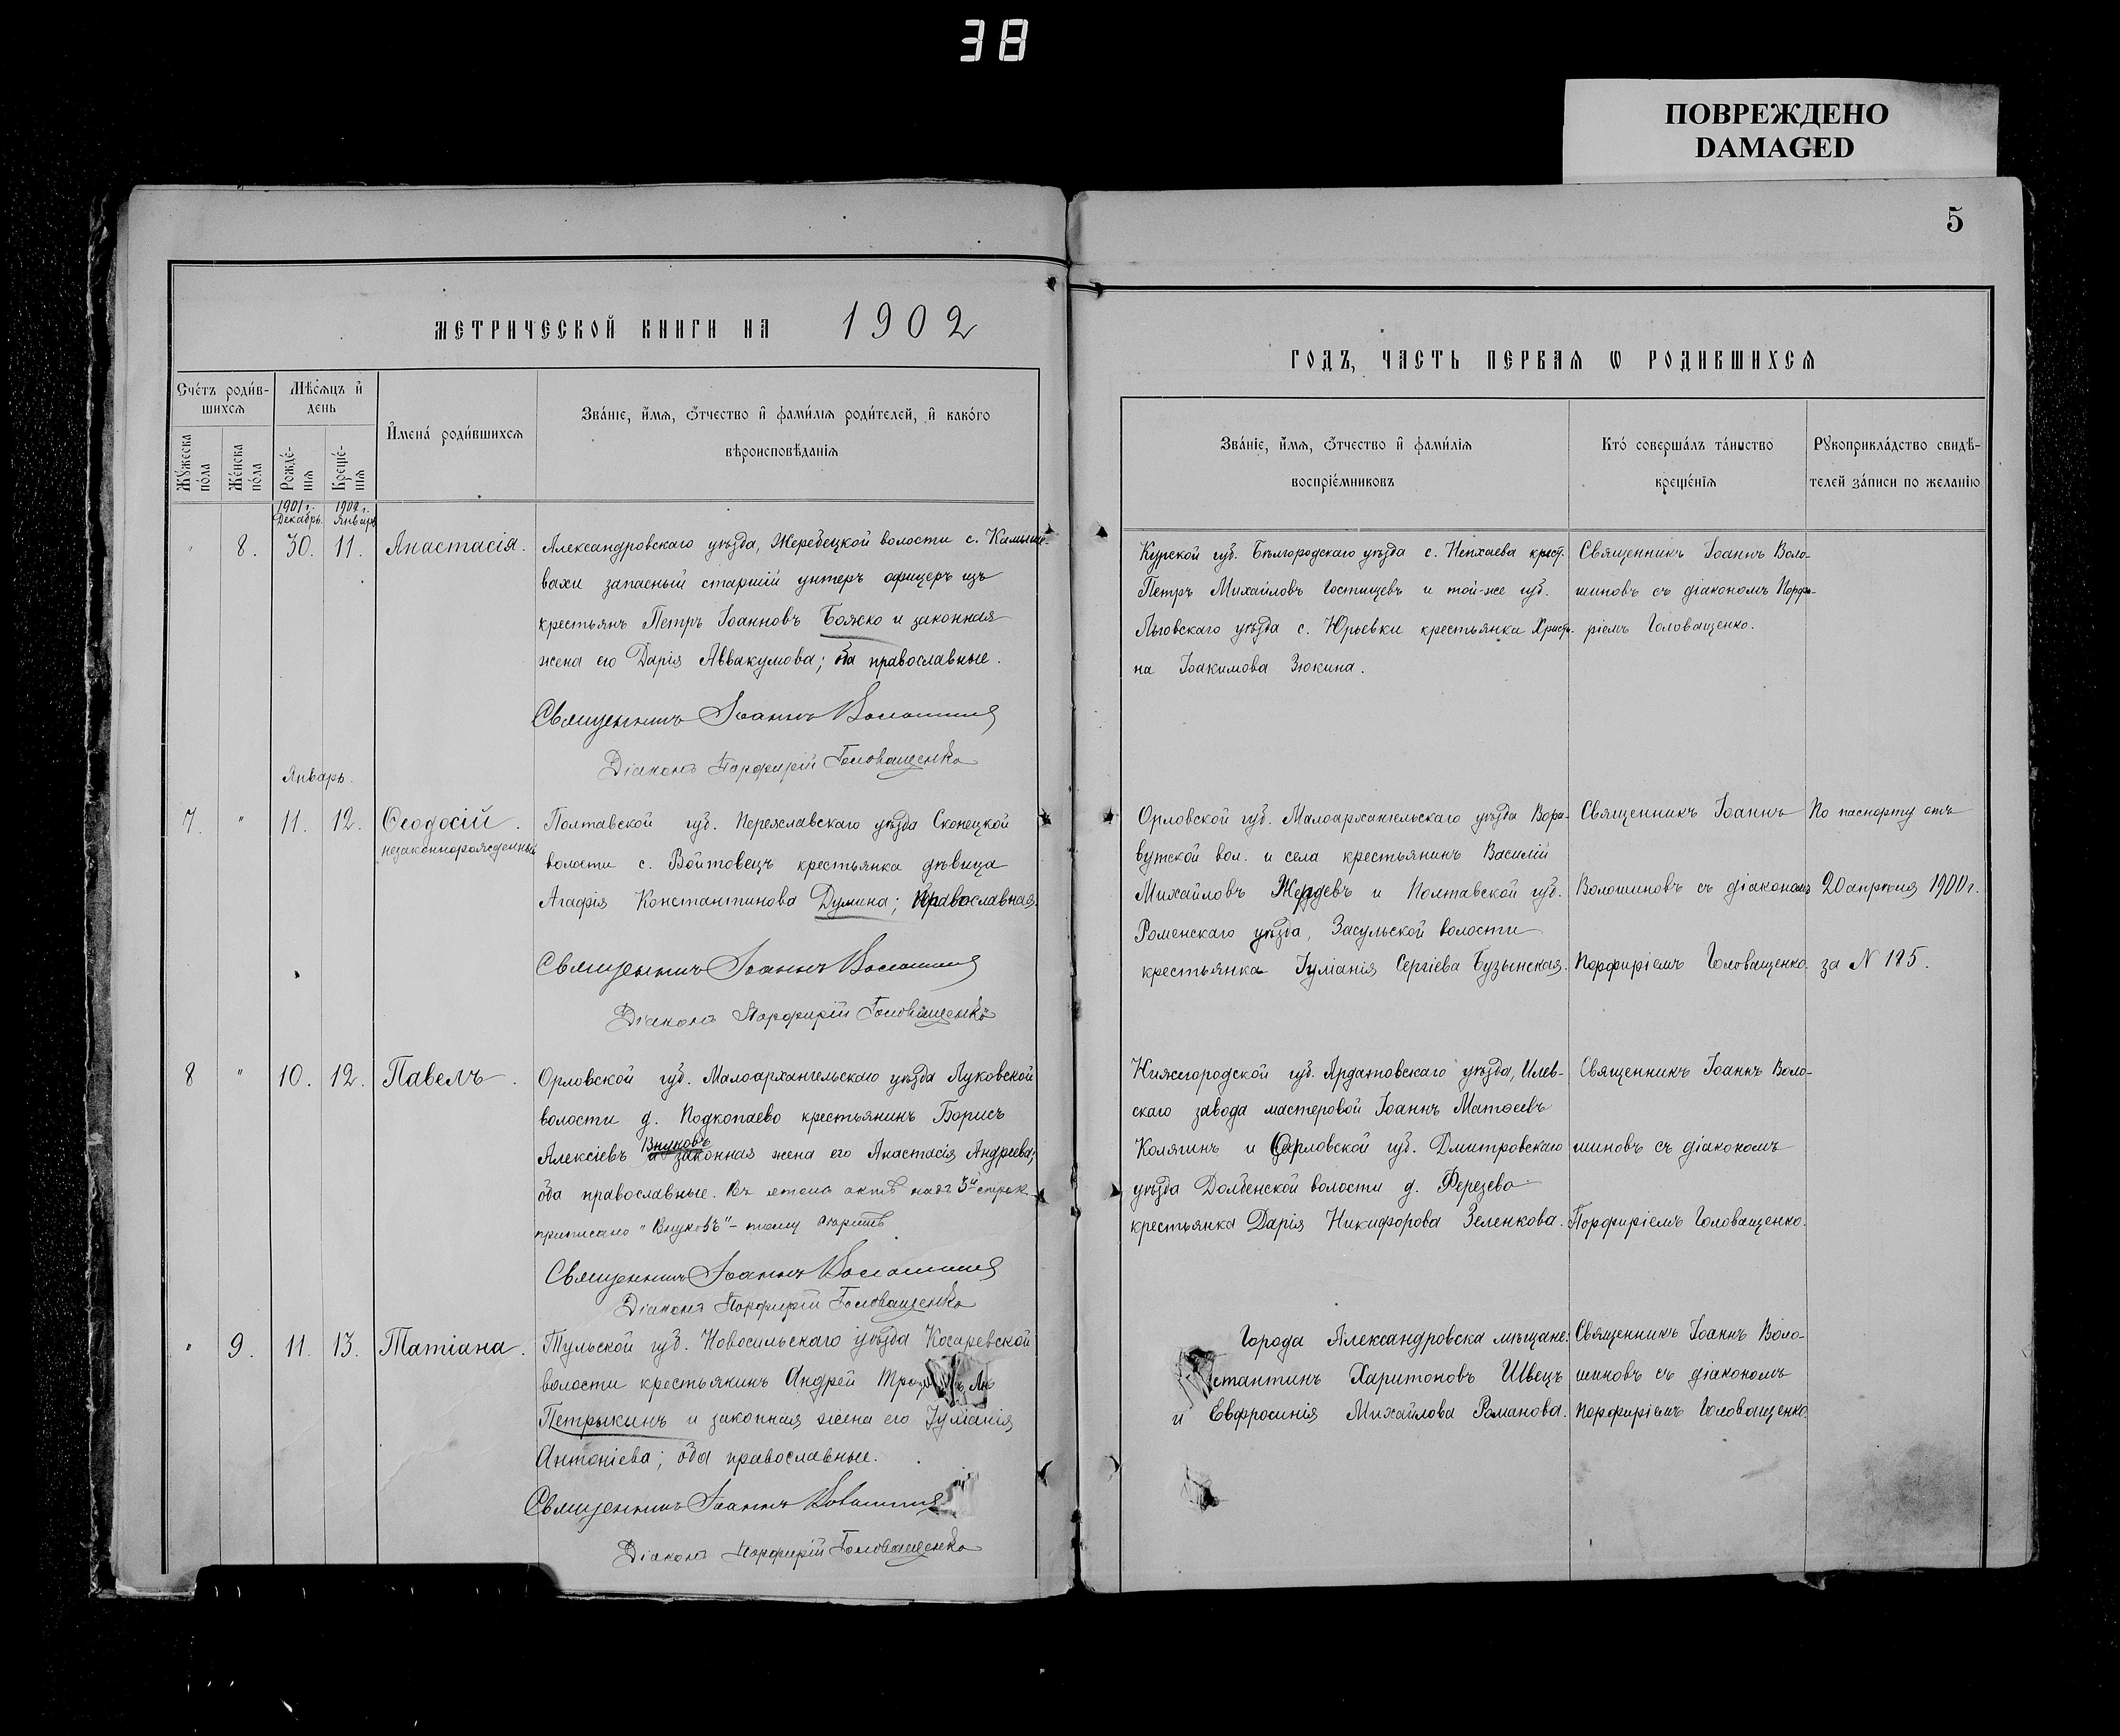 38
ПОВРЕЖДЕНО
DAMAGED
5
МЕТРИЧЕСКОЙ КНИГИ НА 1902
ГОДЪ, ЧАСТЬ ПЕРВАЯ Ѡ РОДИВШИХСЯ
Счетъ родив-
шихся
Мѣсяцъ и
день
Мужеска
пола
Женска
пола
Рожде-
нія
Креще-
нія
Имена родившихся
Званіе, имя, отчество и фамилія родителей, и какого
вѣроисповѣданія
Званіе, имя, отчество и фамилія
воспріемниковъ
Кто совершалъ таинство
крещенія
Рукоприкладство свидѣ-
телей записи по желанію
1901 г. 1902 г.
Декабрь. Январь
" 8. 30. 11. Анастасія.
Александровскаго уѣзда, Жеребецкой волости с. Камыше-
вахи запасный старшій унтеръ офицеръ изъ
крестьянъ Петръ Іоанновъ Бояско и законная
жена его Дарія Аввакумова; оба православные.
Священникъ Іоаннъ Волошинъ
Діаконъ Порфирій Головащенко
Курской губ. Бѣлгородскаго уѣзда с. Непхаева крест.
Петръ Михайловъ Гостищевъ и той-же губ.
Льговскаго уѣзда с. Юрьевки крестьянка Христи-
на Іоакимова Зюкина.
Священникъ Іоаннъ Воло-
шиновъ съ діакономъ Порфи-
ріемъ Головащенко.
Январь.
7. " 11. 12. Ѳеодосій.
незаконнорожденный
Полтавской губ. Переяславскаго уѣзда Скопецкой
волости с. Войтовецъ крестьянка дѣвица
Агафія Константинова Думина; православная.
Священникъ Іоаннъ Волошинъ
Діаконъ Порфирій Головащенко
Орловской губ. Малоархангельскаго уѣзда Вора-
вутской вол. и села крестьянинъ Василій
Михайловъ Жердевъ и Полтавской губ.
Роменскаго уѣзда, Засульской волости
крестьянка Іуліанія Сергіева Бузынская.
Священникъ Іоаннъ
Волошиновъ съ діакономъ
Порфиріемъ Головащенко.
По паспорту отъ
20 апрѣля 1900 г.
за N 185.
8 " 10. 12. Павелъ.
Орловской губ. Малоархангельскаго уѣзда Луковской
волости д. Подкопаево крестьянинъ Борисъ
Внуковъ
Алексіевъ и законная жена его Анастасія Андреева;
оба православные. Въ этомъ актѣ надъ 3й строк.
приписано "Внуковъ" - тому вѣрить
Священникъ Іоаннъ Волошинъ
Діаконъ Порфирій Головащенко
Нижегородской губ. Ардатовскаго уѣзда, Илев-
скаго завода мастеровой Іоаннъ Матѳеевъ
Колягинъ и Орловской губ. Дмитровскаго
уѣзда Долбенской волости д. Ферезево
крестьянка Дарія Никифорова Зеленкова.
Священникъ Іоаннъ Воло-
шиновъ съ діакономъ
Порфиріемъ Головащенко.
" 9. 11. 13. Татіана.
Тульской губ. Новосильскаго уѣзда Косаревской
волости крестьянинъ Андрей
Петрыкинъ и законная жена его Іуліанія
Антоніева; оба православные.
Священникъ Іоаннъ Волошинъ
Діаконъ Порфирій Головащенко
Города Александровска мѣщане:
стантинъ Харитоновъ Швецъ
и Евфросинія Михайлова Романова.
Священникъ Іоаннъ Воло-
шиновъ съ діакономъ
Порфиріемъ Головащенко.